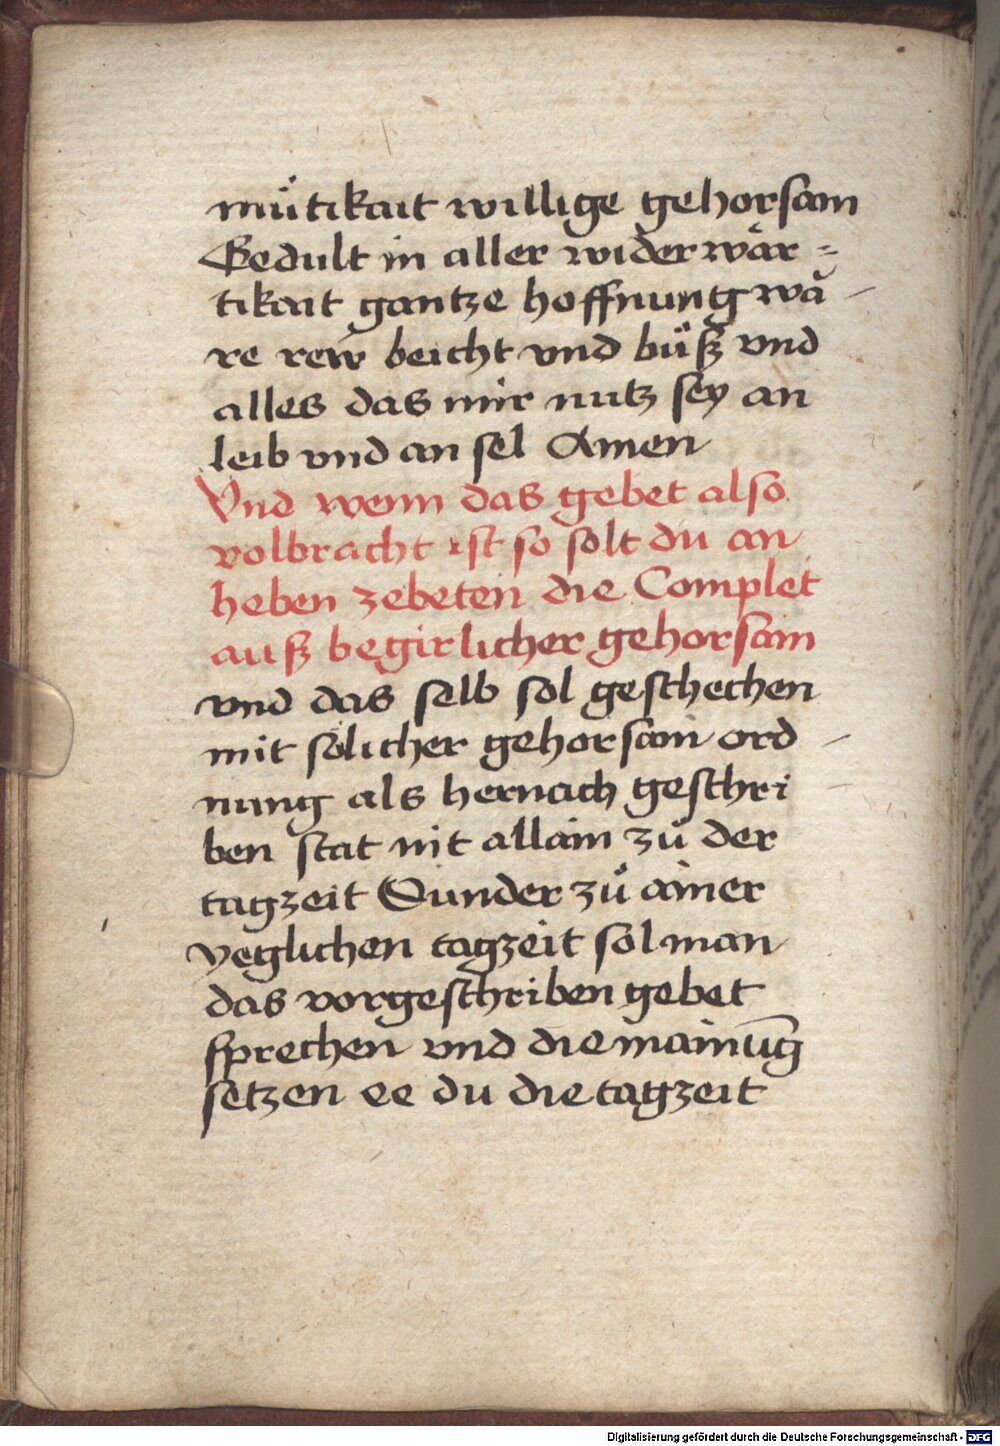 muͤtikait willige gehorsam
Gedult in aller widerwaͤr =
tikait gantze hoffnung waͤ -
re rew beicht vnd buͤß vnd
alles das mir nutz sey an
leib vnd an sel Amen
Vnd wenn das gebet also
volbracht ist so solt du an
heben zebeten die Complet
auß begirlicher gehorsam
vnd das selb sol geschechen
mit solicher gehorsam ord -
nung als hernach geschri -
ben stat nit allain zuͦ der
tagzeit Sunder zuͦ ainer
yeglichen tagzeit sol man
das vorgeschriben gebet
sprechen vnd die mainūg
setzen ee du die tagzeit
Digitalisierung gefördert durch die Deutsche Forschungsgemeinschaft - DFG